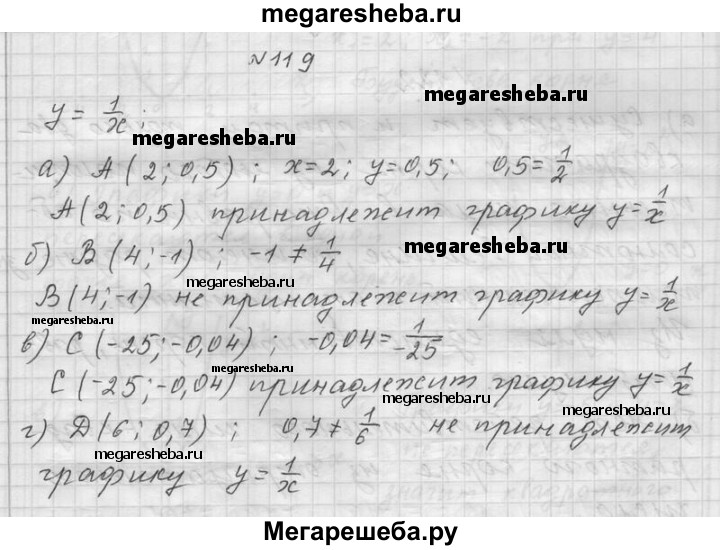 megaresheba.ru
№119
megaresheba.ru
y = 1/x ;
megaresheba.ru
а) A (2; 0,5) ; x=2; y=0,5; 0,5 = 1/2
A (2; 0,5) принадлежит графику y = 1/x
megaresheba.ru
б) B (4; -1) ; -1 ≠ 1/4
megaresheba.ru
B (4; -1) не принадлежит графику y = 1/x
megaresheba.ru
в) C (-25; -0,04) ; -0,04 = 1/-25
megaresheba.ru
C (-25; -0,04) принадлежит графику y = 1/x
megaresheba.ru
megaresheba.ru
г) D (6; 0,7) ; 0,7 ≠ 1/6 не принадлежит
megaresheba.ru
графику y = 1/x
megaresheba.ru
Мегарешеба.ру